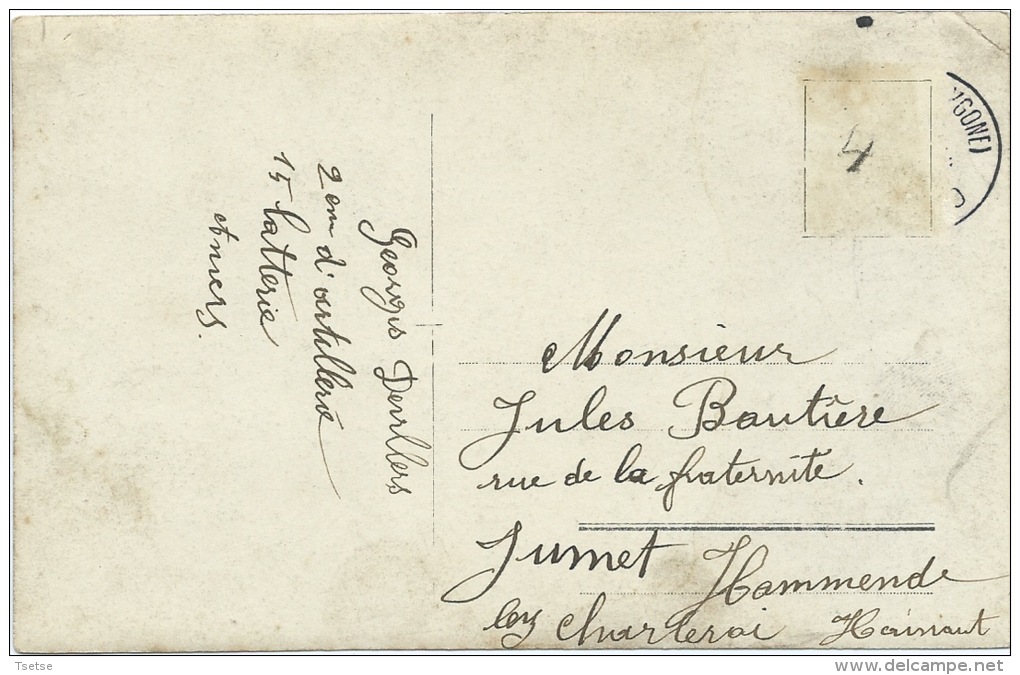 Georgis Derbllers
2em d'artillerie
15 batterie
Anvers.
4
Monsieur
Jules Bautière
rue de la fraternite.
Jumet Hammende
lez Charleroi Hainaut
Tsetse
www.delcampe.net